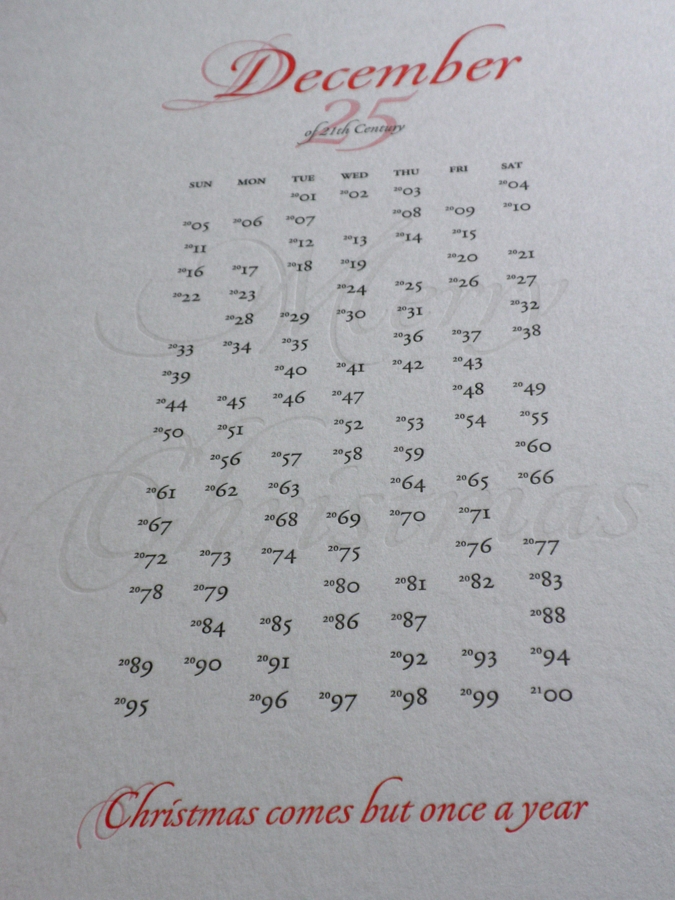 December
25
of 21th Century
SUN MON TUE WED THU FRI SAT
2001 2002 2003 2004
2005 2006 2007 2008 2009 2010
2011 2012 2013 2014 2015
2016 2017 2018 2019 2020 2021
2022 2023 2024 2025 2026 2027
2028 2029 2030 2031 2032
2033 2034 2035 2036 2037 2038
2039 2040 2041 2042 2043
2044 2045 2046 2047 2048 2049
2050 2051 2052 2053 2054 2055
2056 2057 2058 2059 2060
2061 2062 2063 2064 2065 2066
2067 2068 2069 2070 2071
2072 2073 2074 2075 2076 2077
2078 2079 2080 2081 2082 2083
2084 2085 2086 2087 2088
2089 2090 2091 2092 2093 2094
2095 2096 2097 2098 2099 2100
Merry
Christmas
Christmas comes but once a year